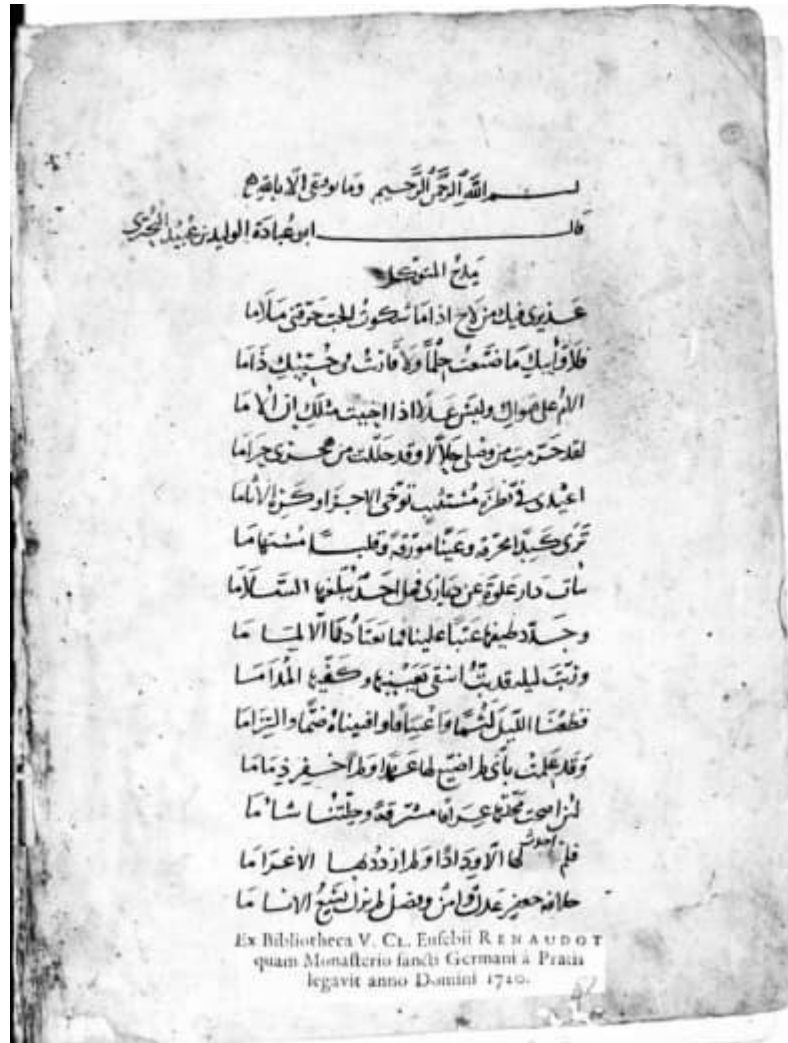 بسم الله الرحمن الرحيم وما توفيقي الا بالله
قال ابو عبادة الوليد بن عبيد البحتري
يمدح المتوكل
عذيري فيك من لاح اذا ما شكوت الحب حرقني ملاما
فلا وابيك ما ضيعت حلما ولا قارفت في حبيك ذاما
الام على هواك وليس عدلا اذا احببت مثلك ان الاما
لقد حرمت من وصلي حلالا وقد حللت من هجري حراما
اعيدي في نظرة مستثيب توخى الاجر او كره الاثاما
تري كبدا محرقة وعينا مورقة وقلبا مستهاما
نات دار علوة عن دياري فهل احد يبلغها السلاما
وجدد طيفها عتبا علينا فما يعتادنا الا لماما
وربت ليلة قد بت اسقى بعينيها وكفيها المداما
قطعنا الليل لثما واعتناقا وافنيناه ضما والتزاما
وقد علمت باني لم اضيع لها عهدا ولم اخفر ذماما
لئن اضحت محلتها عراقا مشرقة وحلتنا شاما
فلم احدث لها الا ودادا ولم ازدد بها الا غراما
خلافة جعفر عدل وامن وفضل لم يزل يسع الاناما
Ex Bibliotheca V. CL. Eusebii RENAUDOT
quam Monasterio sancti Germani à Pratis
legavit anno Domini 1720.